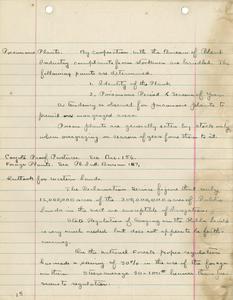 Poisonous Plants. By cooperation with the Bureau of Plant
Industry complaints from stockmen are handled. The
following points are determined.
1. Identity of the Plant
2. Poisonous Period & Season of Year.
A tendency is observed for poisonous plants to
persist on overgrazed areas.
Poison plants are generally eaten by stock only
when overgrazing or season of year force them to it.
Coyote Proof Pasture. See Circ. 156.
Forage Plants. See Bul.
Outlook for western lands.
The Reclamation Service figures that only
of the
lands in the west are susceptible of irrigation.
Regulation of grazing on the Public lands
is very much needed but does not appear to be forth-
coming.
On the National Forests proper regulation
has made a saving of 30% in the use of the forage
on them.
to regulation.